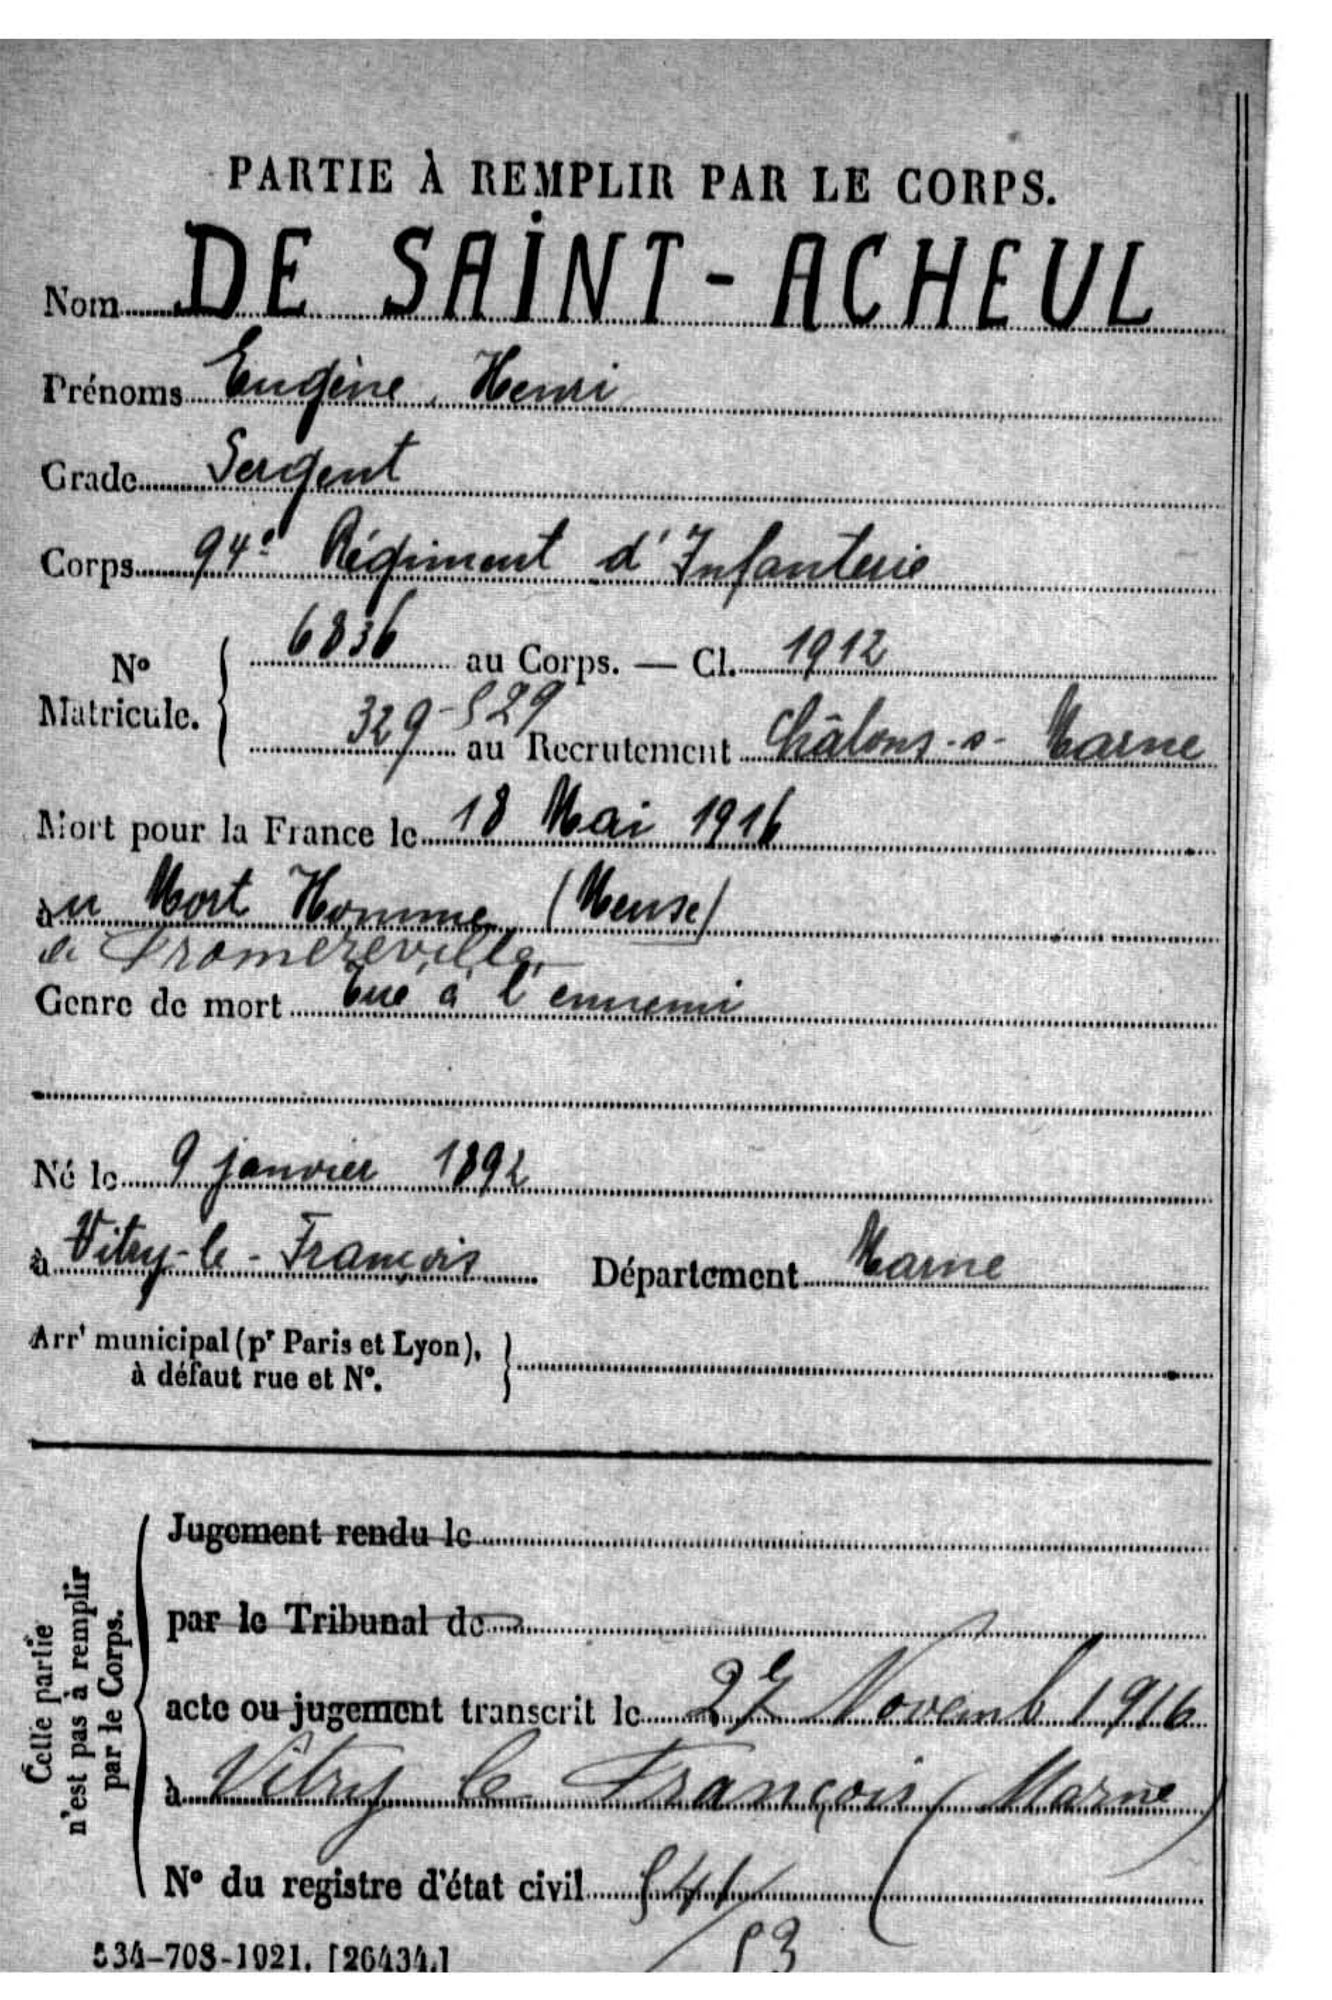 PARTIE À REMPLIR PAR LE CORPS.
Nom DE SAINT-ACHEUL
Prénoms Eugène, Henri
Grade Sergent
Corps 94e Régiment d'Infanterie
No Matricule. { 6836 au Corps. — Cl. 1912
329-529 au Recrutement Châlons-s-Marne
Mort pour la France le 18 Mai 1916
au Mort Homme (Meuse)
Fromereville
Genre de mort Tué à l'ennemi
Né le 9 janvier 1892
à Vitry-le-François Département Marne
Arrt municipal (pr Paris et Lyon), }
à défaut rue et No.
Cette partie
n'est pas à remplir
par le Corps.
Jugement rendu le
par le Tribunal de
acte ou jugement transcrit le 27 Novemb 1916
à Vitry le François (Marne)
No du registre d'état civil 541/
53
534-708-1921. [26434.]